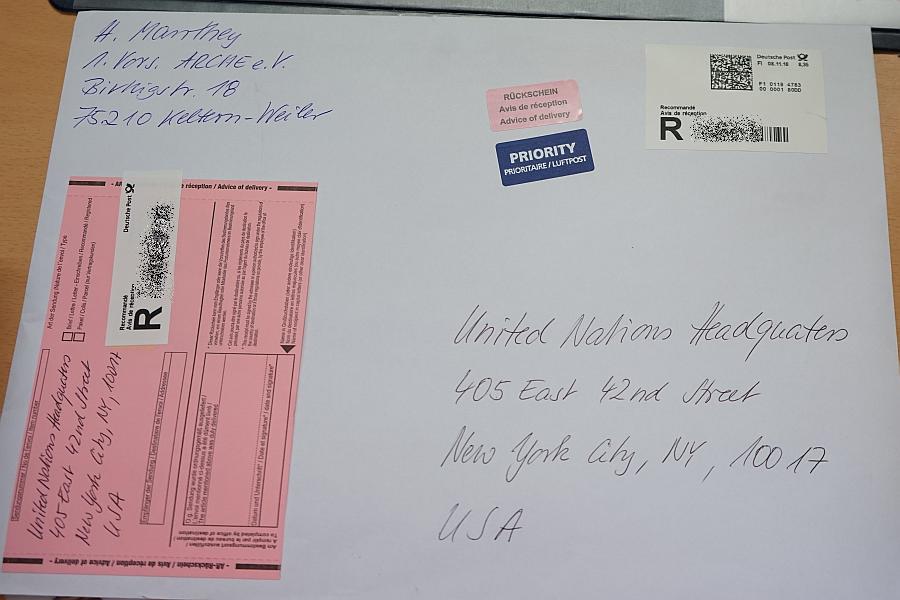 H. Manthey
1. Vors. ARCHE e.V.
Birkigstr. 18
75210 Keltern-Weiler
RÜCKSCHEIN
Avis de réception
Advice of delivery
PRIORITY
PRIORITAIRE / LUFTPOST
Deutsche Post
FI 08.11.18 8,35
F1 0119 4783
00 0001 80DD
Recommandé
Avis de réception
R
United Nations Headquaters
405 East 42nd Street
New York City, NY, 10017
USA
e réception / Advice of delivery -
Deutsche Post
Recommandé
Avis de réception
R
Art der Sendung / Nature de l'envoi / Type
Brief / Lettre / Letter
Einschreiben / Recommandé / Registered
Paket / Colis / Parcel
Sendungsnummer / No de l'envoi / Item number
United Nations Headquaters
405 East 42nd Street
New York City, NY, 10017
USA
Empfänger der Sendung / Destinataire de l'envoi / Addressee
O.g. Sendung wurde ordnungsgemäß ausgeliefert /
L'envoi mentionné ci-dessus a été dûment livré /
The article mentioned above was duly delivered
Datum und Unterschrift* / Date et signature* / date and signature*
Am Bestimmungsort auszufüllen /
A remplir par le bureau de destination /
To completed by office of destination
- AR-Rückschein / Avis de réception / Advice of delivery -